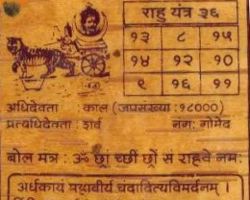 राहु यंत्र ३६
१३ ८ १५
१४ १२ १०
९ १६ ११
अधिदेवता : काल (जपसंख्या :१८०००)
प्रत्यधिदेवता : शर्व नग: गोमेद
बोल मंत्र : ॐ छ्रां च्छीं छ्रों सं राहवे नम:
अर्धकायं महावीर्यं चंदादित्यविमर्दनम् ।